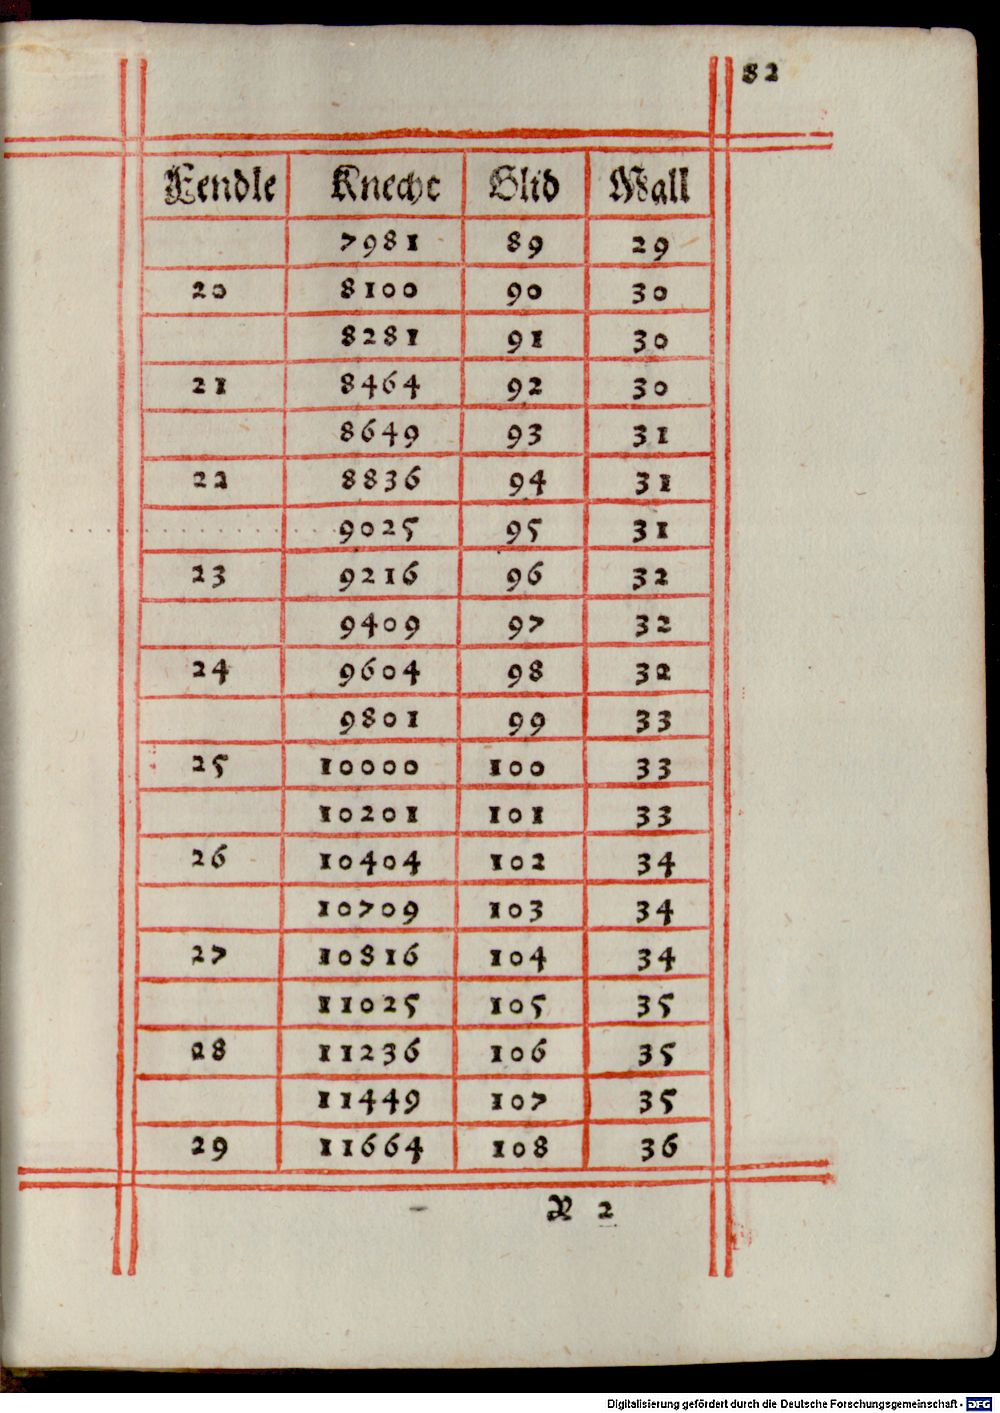 82
Fendle Knecht Glid Wall
7981 89 29
20 8100 90 30
8281 91 30
21 8464 92 30
8649 93 31
22 8836 94 31
9025 95 31
23 9216 96 32
9409 97 32
24 9604 98 32
9801 99 33
25 10000 100 33
10201 101 33
26 10404 102 34
10709 103 34
27 10816 104 34
11025 105 35
28 11236 106 35
11449 107 35
29 11664 108 36
R 2
Digitalisierung gefördert durch die Deutsche Forschungsgemeinschaft - DFG